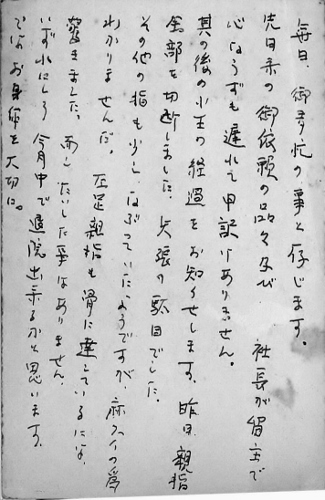 毎日、御多忙の事と存じます。
先日来の御依頼の品々及び 社長が留守で
心ならずも遅れて申訳けありません。
其の後の小生の経過をお知らせします。昨日、親指
全部を切断しました。矢張り駄目でした。
その他の指も少しはぶっていたようですが 麻スイの為
わかりませんでした。 左足親指も骨に達しているには
驚きました。而したいした事はありません。
いずれにしろ 今月中で退院出来るかと思います。
ではお身体を大切に。